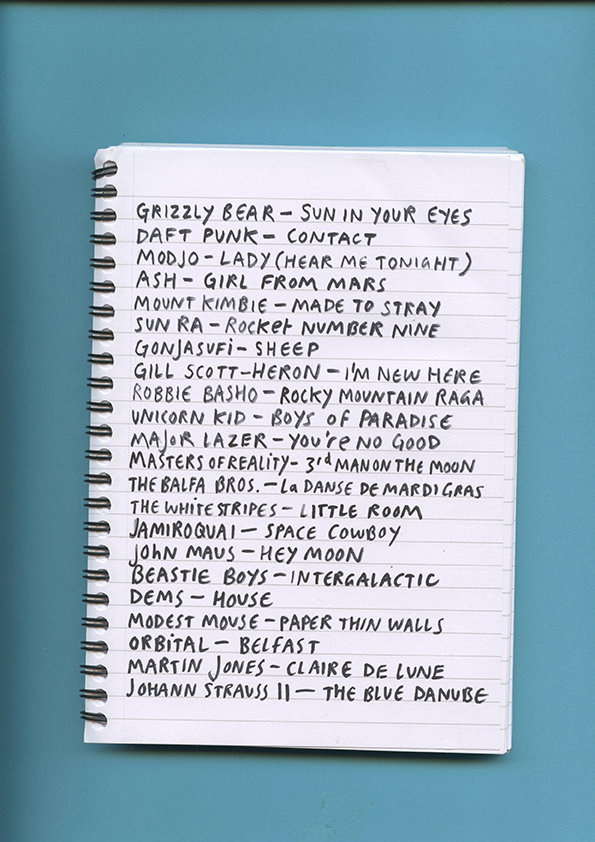 GRIZZLY BEAR - SUN IN YOUR EYES
DAFT PUNK - CONTACT
MODJO - LADY (HEAR ME TONIGHT)
ASH - GIRL FROM MARS
MOUNT KIMBIE - MADE TO STRAY
SUN RA - Rocket NUMBER NINE
GONJASUFi - SHEEP
GILL SCOTT-HERON - I'M NEW HERE
ROBBIE BASHO - ROCKY MOUNTAIN RAGA
UNICORN KID - BOYS OF PARADISE
MAJOR LAZER - YOU're NO GOOD
MASTERS OF REALITY - 3rd MAN ON THE MOON
THE BALFA BROS. - La DANSE DE MARDI GRAS
THE WHITE STRIPES - LITTLE ROOM
JAMIROQUAI - SPACE COWBOY
JOHN MAUS - HEY MOON
BEASTIE BOYS - INTERGALACTIC
DEMS - HOUSE
MODEST MOUSE - PAPER THIN WALLS
ORBITAL - BELFAST
MARTIN JONES - CLAIRE DE LUNE
JOHANN STRAUSS II - THE BLUE DANUBE